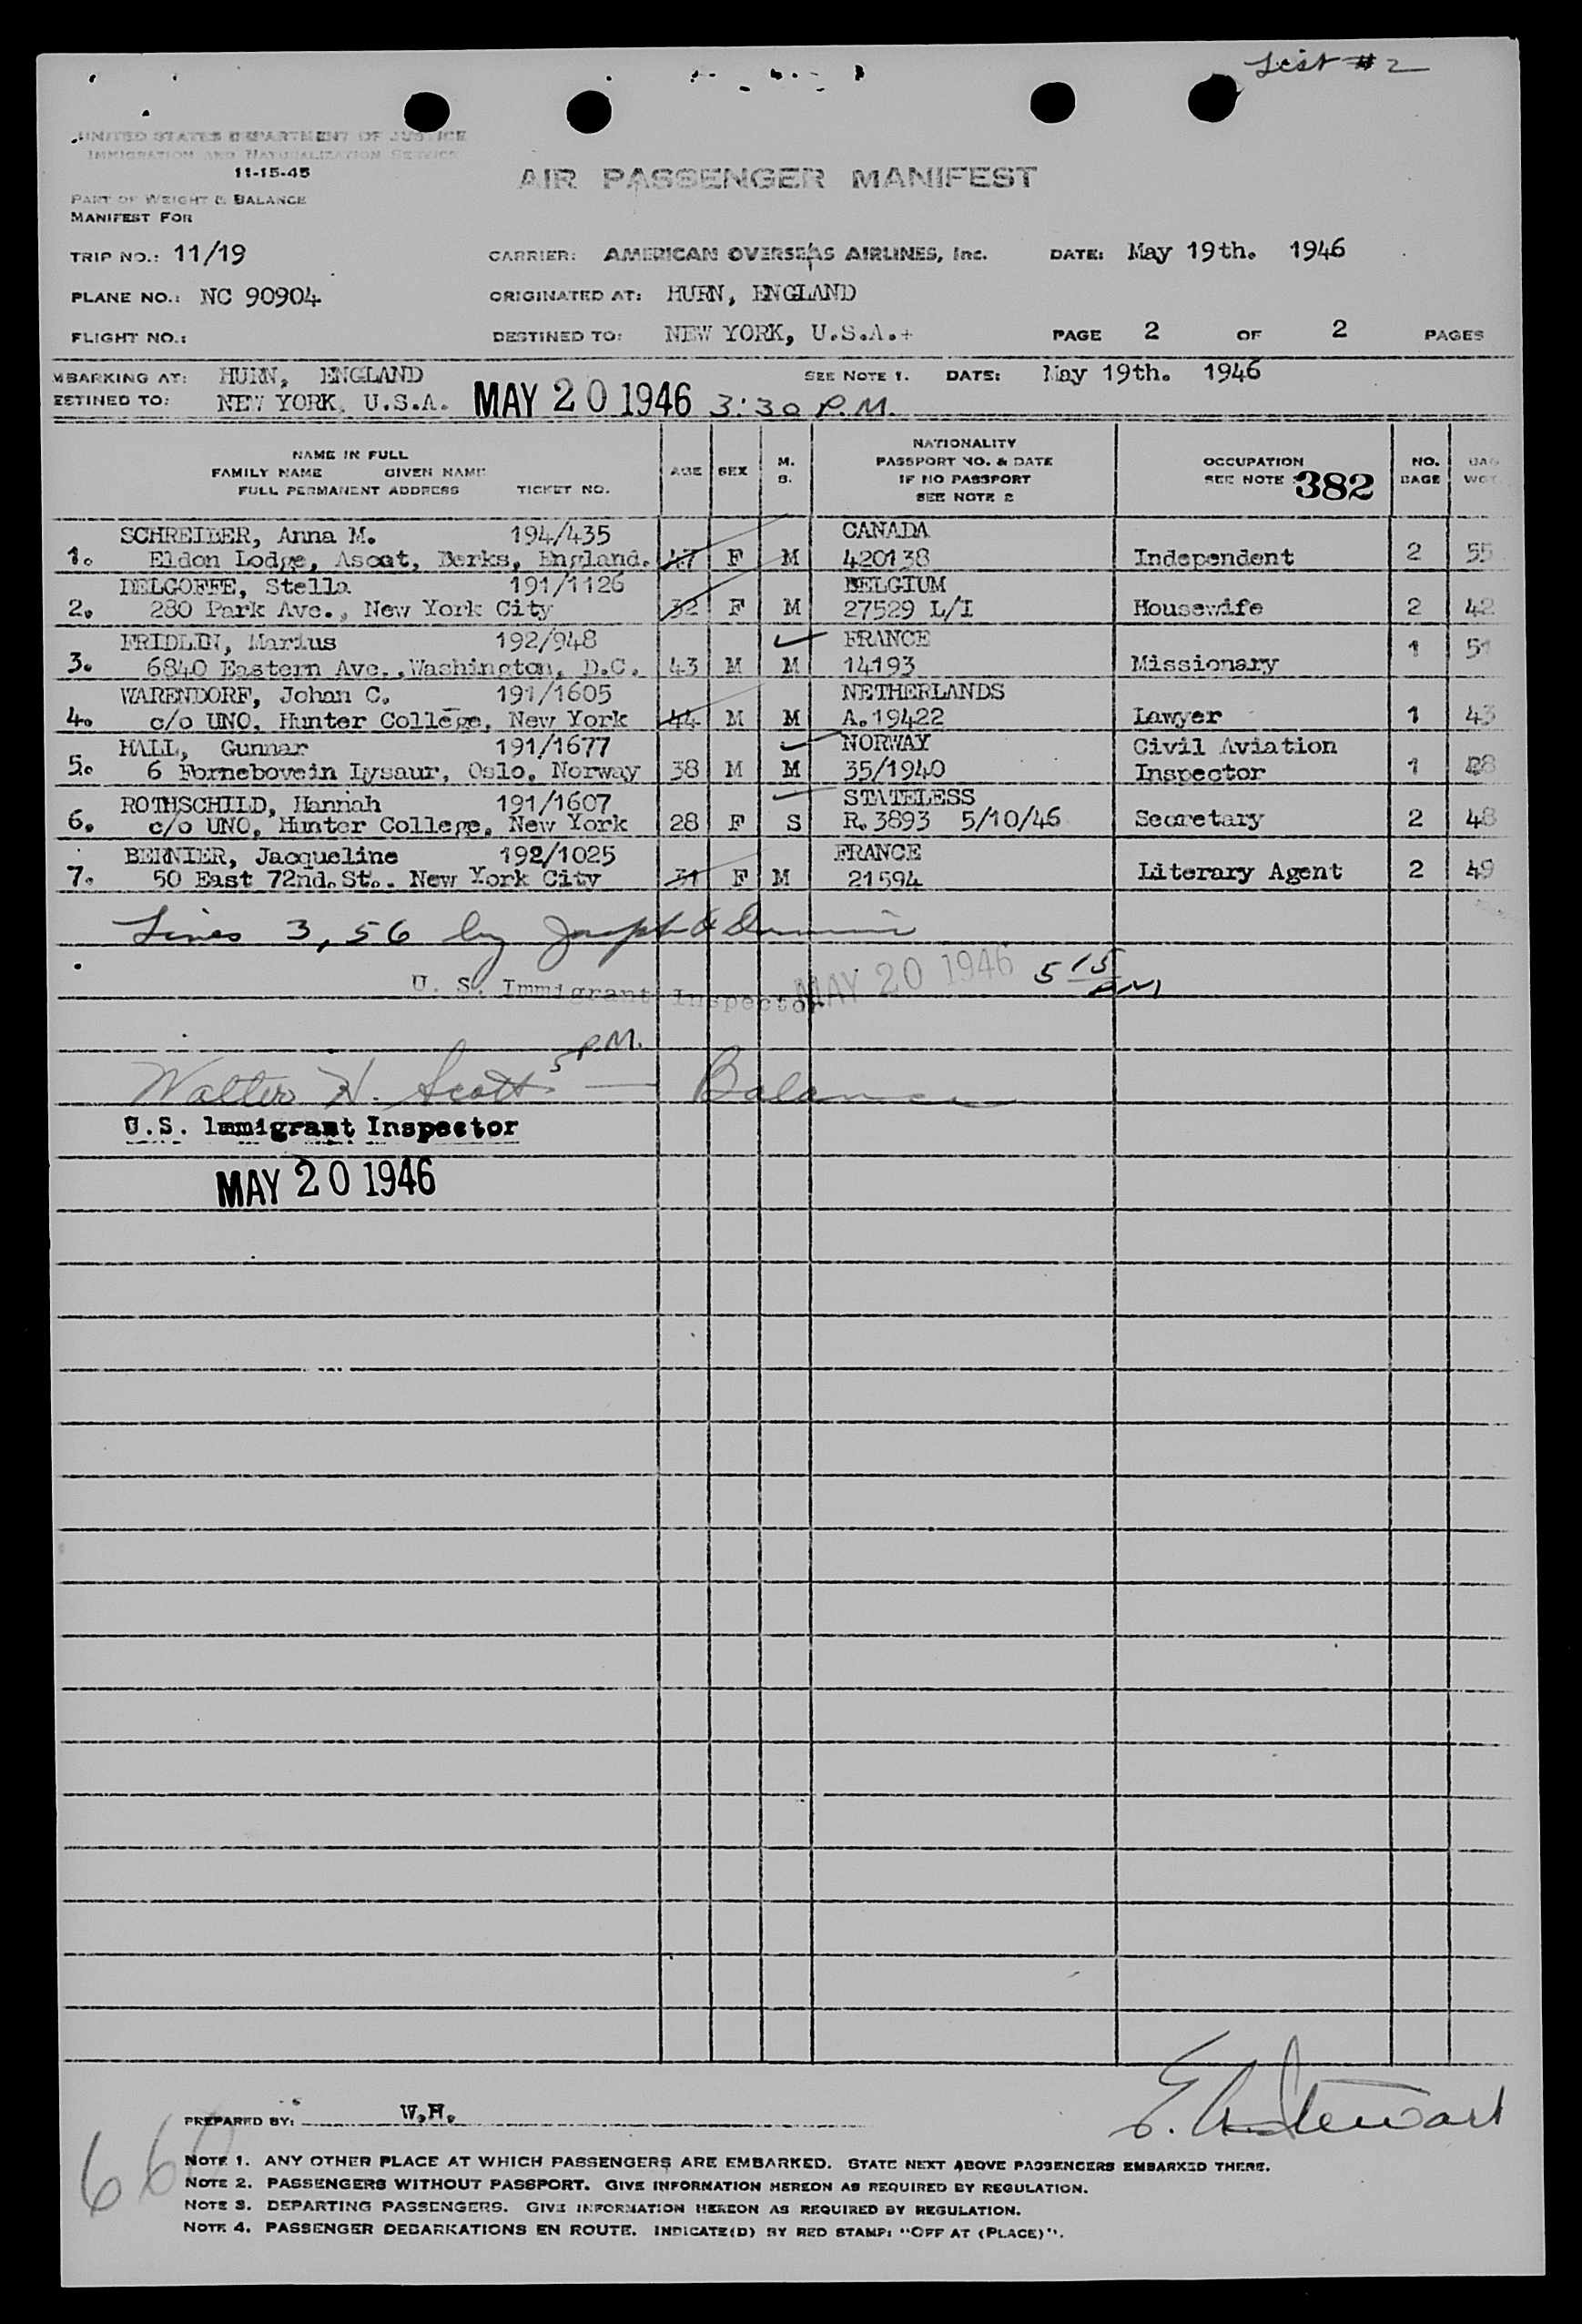 List # 2
UNITED STATES DEPARTMENT OF JUSTICE
IMMIGRATION AND NATURALIZATION SERVICE
11-15-45
AIR PASSENGER MANIFEST
PART OF WEIGHT & BALANCE
MANIFEST FOR
TRIP NO.: 11/19 CARRIER: AMERICAN OVERSEAS AIRLINES, Inc. DATE: May 19th. 1946
PLANE NO.: NC 90904 ORIGINATED AT: HURN, ENGLAND
FLIGHT NO.: DESTINED TO: NEW YORK, U.S.A.+ PAGE 2 OF 2 PAGES
MBARKING AT: HURN, ENGLAND SEE NOTE 1. DATE: May 19th. 1946
ESTINED TO: NEW YORK, U.S.A. MAY 20 1946 3:30 P.M.
NAME IN FULL
FAMILY NAME GIVEN NAME
FULL PERMANENT ADDRESS TICKET NO.
AGE SEX M. S.
NATIONALITY
PASSPORT NO. & DATE
IF NO PASSPORT
SEE NOTE 2
OCCUPATION
SEE NOTE 382
NO. BAGS BAG WGT.
SCHREIBER, Anna M. 194/435 CANADA
1. Eldon Lodge, Ascot, Berks, England. 47 F M 420138 Independent 2 55
DELGOFFE, Stella 191/1126 BELGIUM
2. 280 Park Ave., New York City 32 F M 27529 L/I Housewife 2 42
FRIDLIN, Marius 192/948 FRANCE
3. 6840 Eastern Ave., Washington, D.C. 43 M M 14193 Missionary 1 51
WARENDORF, Johan C. 191/1605 NETHERLANDS
4. c/o UNO, Hunter College, New York 44 M M A.19422 Lawyer 1 43
HALL, Gunnar 191/1677 NORWAY Civil Aviation
5. 6 Fornebovein Lysaur, Oslo, Norway 38 M M 35/1940 Inspector 1
ROTHSCHILD, Hannah 191/1607 STATELESS
6. c/o UNO, Hunter College, New York 28 F S R.3893 5/10/46 Secretary 2 48
BERNIER, Jacqueline 192/1025 FRANCE
7. 50 East 72nd. St.. New York City 31 F M 21594 Literary Agent 2 49
Lines 3, 5 6 by Joseph
U. S. Immigrant Inspector MAY 20 1946 5 15 PM
5 P.M.
Walter H. Scott — Balance
U.S. Immigrant Inspector
MAY 20 1946
E. A. Stewart
PREPARED BY: W.H.
66
NOTE 1. ANY OTHER PLACE AT WHICH PASSENGERS ARE EMBARKED. STATE NEXT ABOVE PASSENGERS EMBARKED THERE.
NOTE 2. PASSENGERS WITHOUT PASSPORT. GIVE INFORMATION HEREON AS REQUIRED BY REGULATION.
NOTE 3. DEPARTING PASSENGERS. GIVE INFORMATION HEREON AS REQUIRED BY REGULATION.
NOTE 4. PASSENGER DEBARKATIONS EN ROUTE. INDICATE(D) BY RED STAMP: "OFF AT (PLACE)".